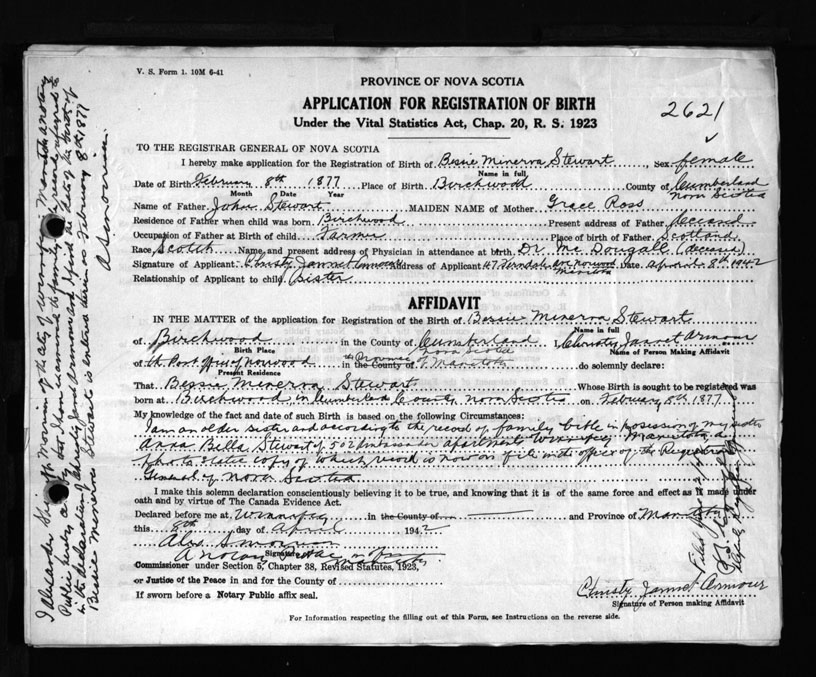 V. S. Form 1. 10M 6-41
PROVINCE OF NOVA SCOTIA
APPLICATION FOR REGISTRATION OF BIRTH
2621
Under the Vital Statistics Act, Chap. 20, R. S. 1923
TO THE REGISTRAR GENERAL OF NOVA SCOTIA
I hereby make application for the Registration of Birth of Bessie Minerva Stewart, Sex female
Name in full
Date of Birth February 8th 1877 Place of Birth Birchwood County of Cumberland
Month Date Year Nova Scotia
Name of Father John Stewart MAIDEN NAME of Mother Grace Ross
Residence of Father when child was born Birchwood Present address of Father deceased
Occupation of Father at Birth of child Farmer Place of birth of Father Scotland
Race Scotch Name and present address of Physician in attendance at birth Dr McDougall (deceased)
Signature of Applicant Christy Jannet Armour Address of Applicant 47 Norwood Date April 8th 1942
Relationship of Applicant to child sister
AFFIDAVIT
IN THE MATTER of the application for Registration of the Birth of Bessie Minerva Stewart
Name in full
of Birchwood in the County of Cumberland I, Christy Jannet Armour
Birth Place Nova Scotia Name of Person Making Affidavit
of the Post office of Norwood in the County of the Province of Manitoba do solemnly declare:
Present Residence
That Bessie Minerva Stewart Whose Birth is sought to be registered was
born at Birchwood in Cumberland County Nova Scotia on February 8th 1877
My knowledge of the fact and date of such Birth is based on the following Circumstances:
I am an older sister and according to the record of family bible in possession of my sister
Anna Bella Stewart of 502 apartment Winnipeg Manitoba, a
photostatic copy of which record is now on file in the office of the Registrar
General of Nova Scotia
I make this solemn declaration conscientiously believing it to be true, and knowing that it is of the same force and effect as if made under
oath and by virtue of The Canada Evidence Act.
Declared before me at Winnipeg in the County of and Province of Manitoba
this 8th day of April 1942
Signature
A Notary Public in
Commissioner under Section 5, Chapter 38, Revised Statutes, 1923,
or Justice of the Peace in and for the County of
If sworn before a Notary Public affix seal.
Christy Jannet Armour
Signature of Person making Affidavit
For Information respecting the filling out of this Form, see Instructions on the reverse side.
I Alexander Morrison of the city of Winnipeg Manitoba a notary
Public hereby certify that I have examined the family bible record referred to
in the declaration of Christy Jannet Armour and I find the date of the birth of
Bessie Minerva Stewart is entered therein as February 8th, 1877